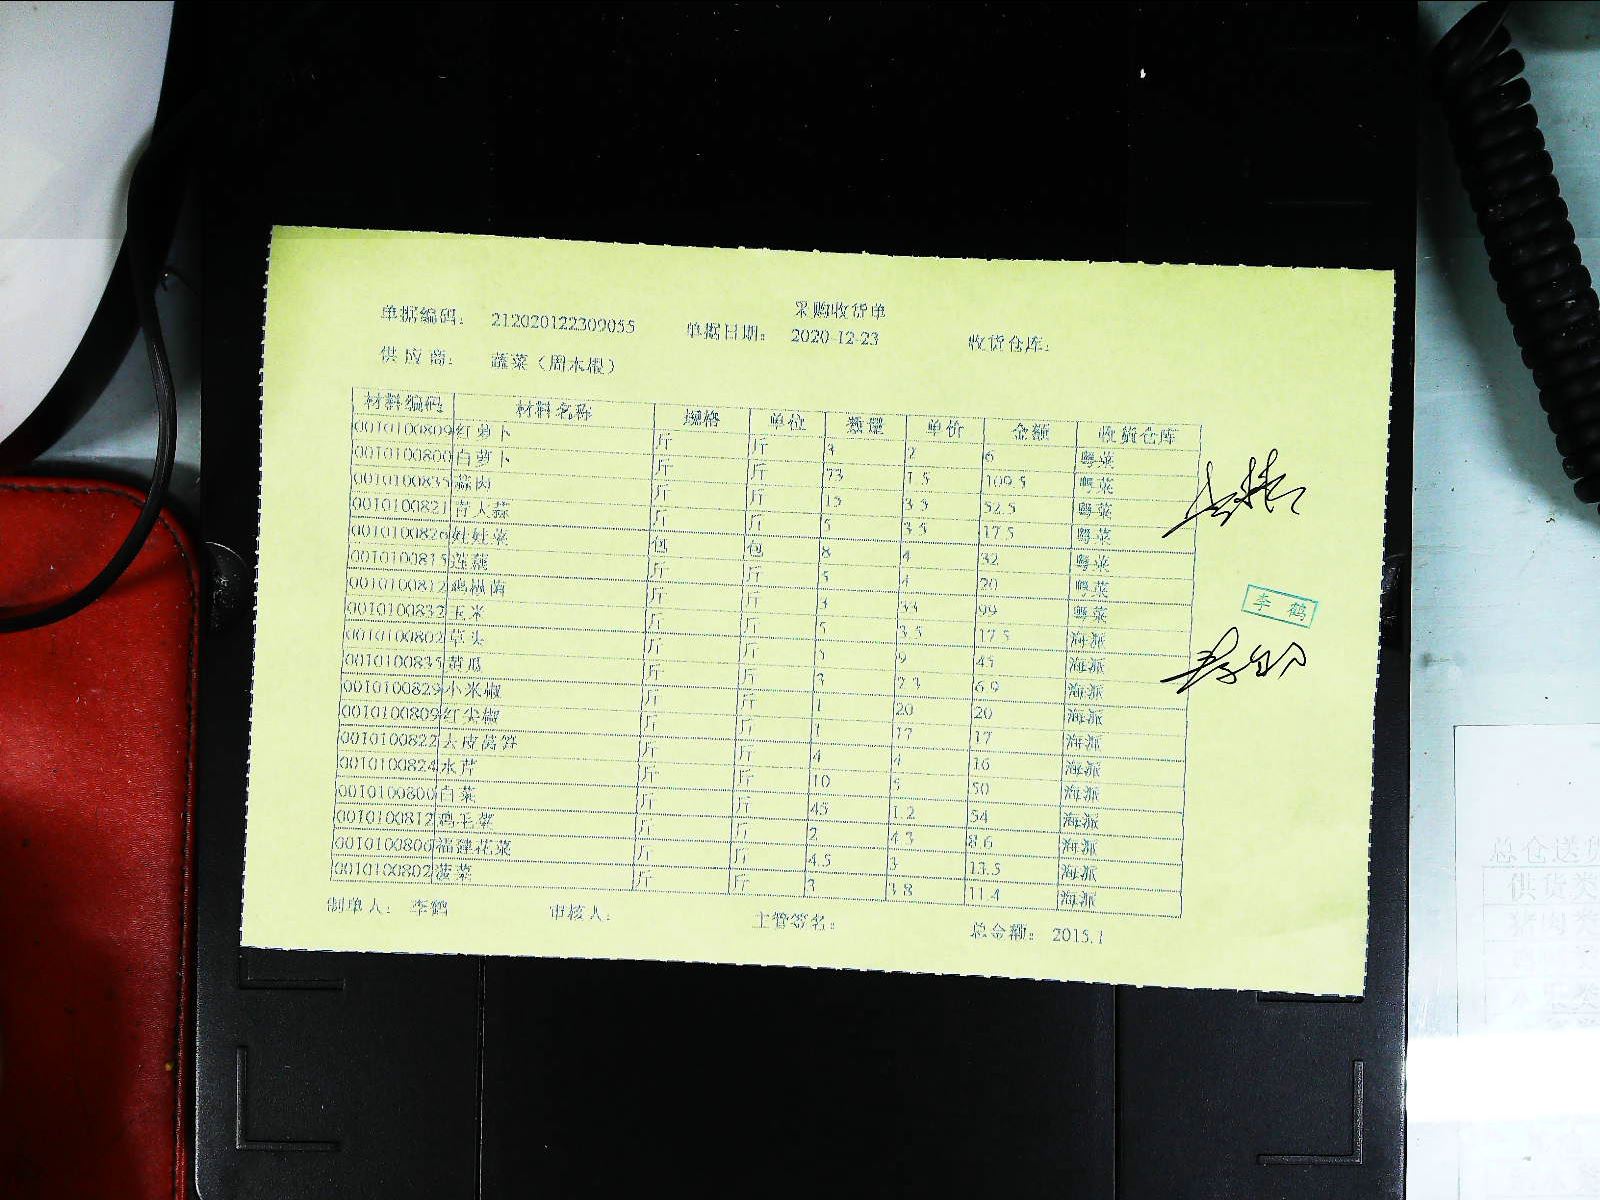 采购收货单
单据编码： 212020122309055 单据日期： 2020-12-23 收货仓库：
供 应 商： 蔬菜（周木根）
材料编码 材料名称 规格 单位 数量 单价 金额 收货仓库
0010100809 红萝卜 斤 斤 3 2 6 粤菜
0010100800 白萝卜 斤 斤 73 1.5 109.5 粤菜
0010100835 蒜肉 斤 斤 15 3.5 52.5 粤菜
0010100821 青大蒜 斤 斤 5 3.5 17.5 粤菜
0010100826 娃娃菜 包 包 8 4 32 粤菜
0010100815 莲藕 斤 斤 5 4 20 粤菜
0010100812 鸡枞菌 斤 斤 3 33 99 粤菜
0010100832 玉米 斤 斤 5 3.5 17.5 海派
0010100802 草头 斤 斤 5 9 45 海派
0010100835 黄瓜 斤 斤 3 2.3 6.9 海派
0010100829 小米椒 斤 斤 1 20 20 海派
0010100809 红尖椒 斤 斤 1 17 17 海派
0010100822 大皮莴笋 斤 斤 4 4 16 海派
0010100824 水芹 斤 斤 10 5 50 海派
0010100800 白菜 斤 斤 45 1.2 54 海派
0010100812 鸡毛菜 斤 斤 2 4.3 8.6 海派
0010100806 福建花菜 斤 斤 4.5 3 13.5 海派
0010100802 菠菜 斤 斤 3 3.8 11.4 海派
制单人： 李鹤 审核人： 主管签名： 总金额： 2015.1
李 鹤
总仓送货
供货类
猪肉类